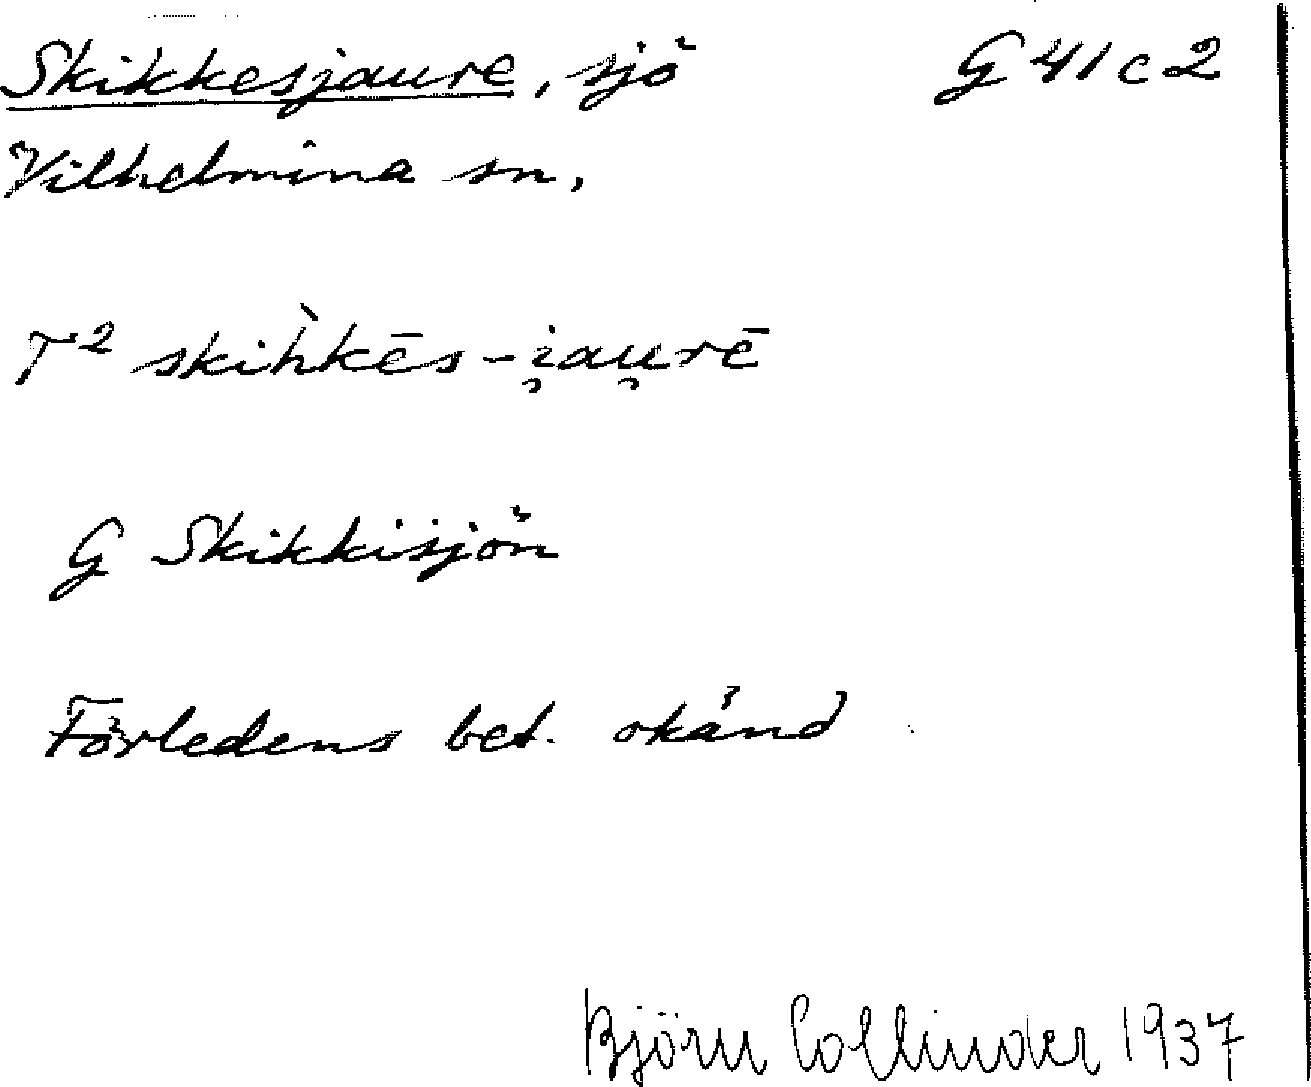 Skikkesjaure, sjö G 41 c 2
Vilhelmina sn.
T² skih̀kēs-i̯au̯rē
G Skikkisjön
Förledens bet. okänd
Björn Collinder 1937